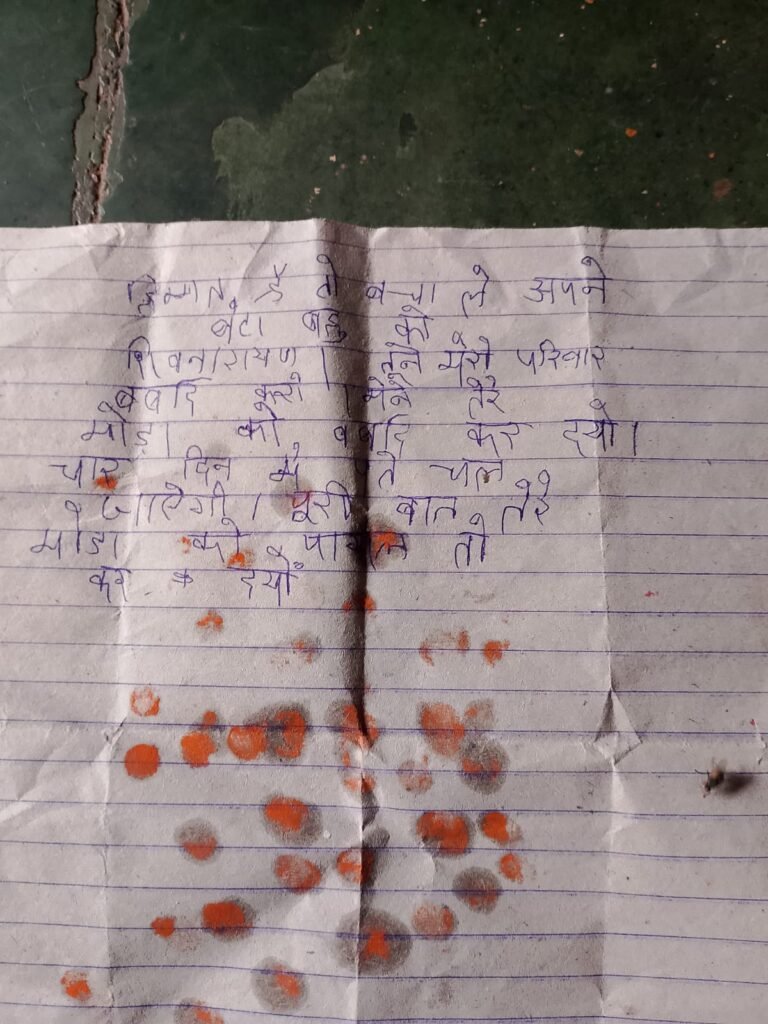 हिम्मत है तो बचा ले अपने
बेटा बहु को
शिवनारायण। मेरो परिवार
बर्बाद करो मैंने तेरे
मोड़ा को बर्बाद कर दयो।
चार दिन में पते चल
जाऐगी। पूरी बात तेरे
मोडा को पागल तो
कर दयो